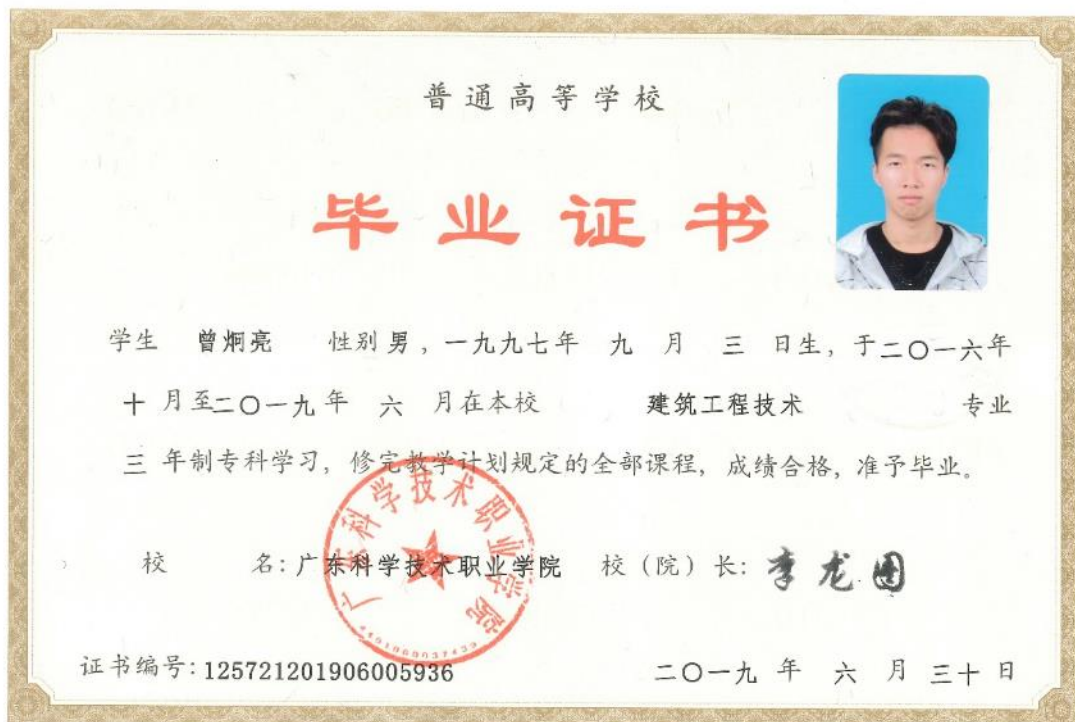 普通高等学校
毕业证书
学生 曾炯亮 性别 男，一九九七年 九 月 三 日生，于二〇一六年
十 月至二〇一九年 六 月在本校 建筑工程技术 专业
三 年制专科学习，修完教学计划规定的全部课程，成绩合格，准予毕业。
广东科学技术职业学院
校 名：广东科学技术职业学院 校（院）长：李龙图
证书编号：125721201906005936 二〇一九 年 六 月 三十 日